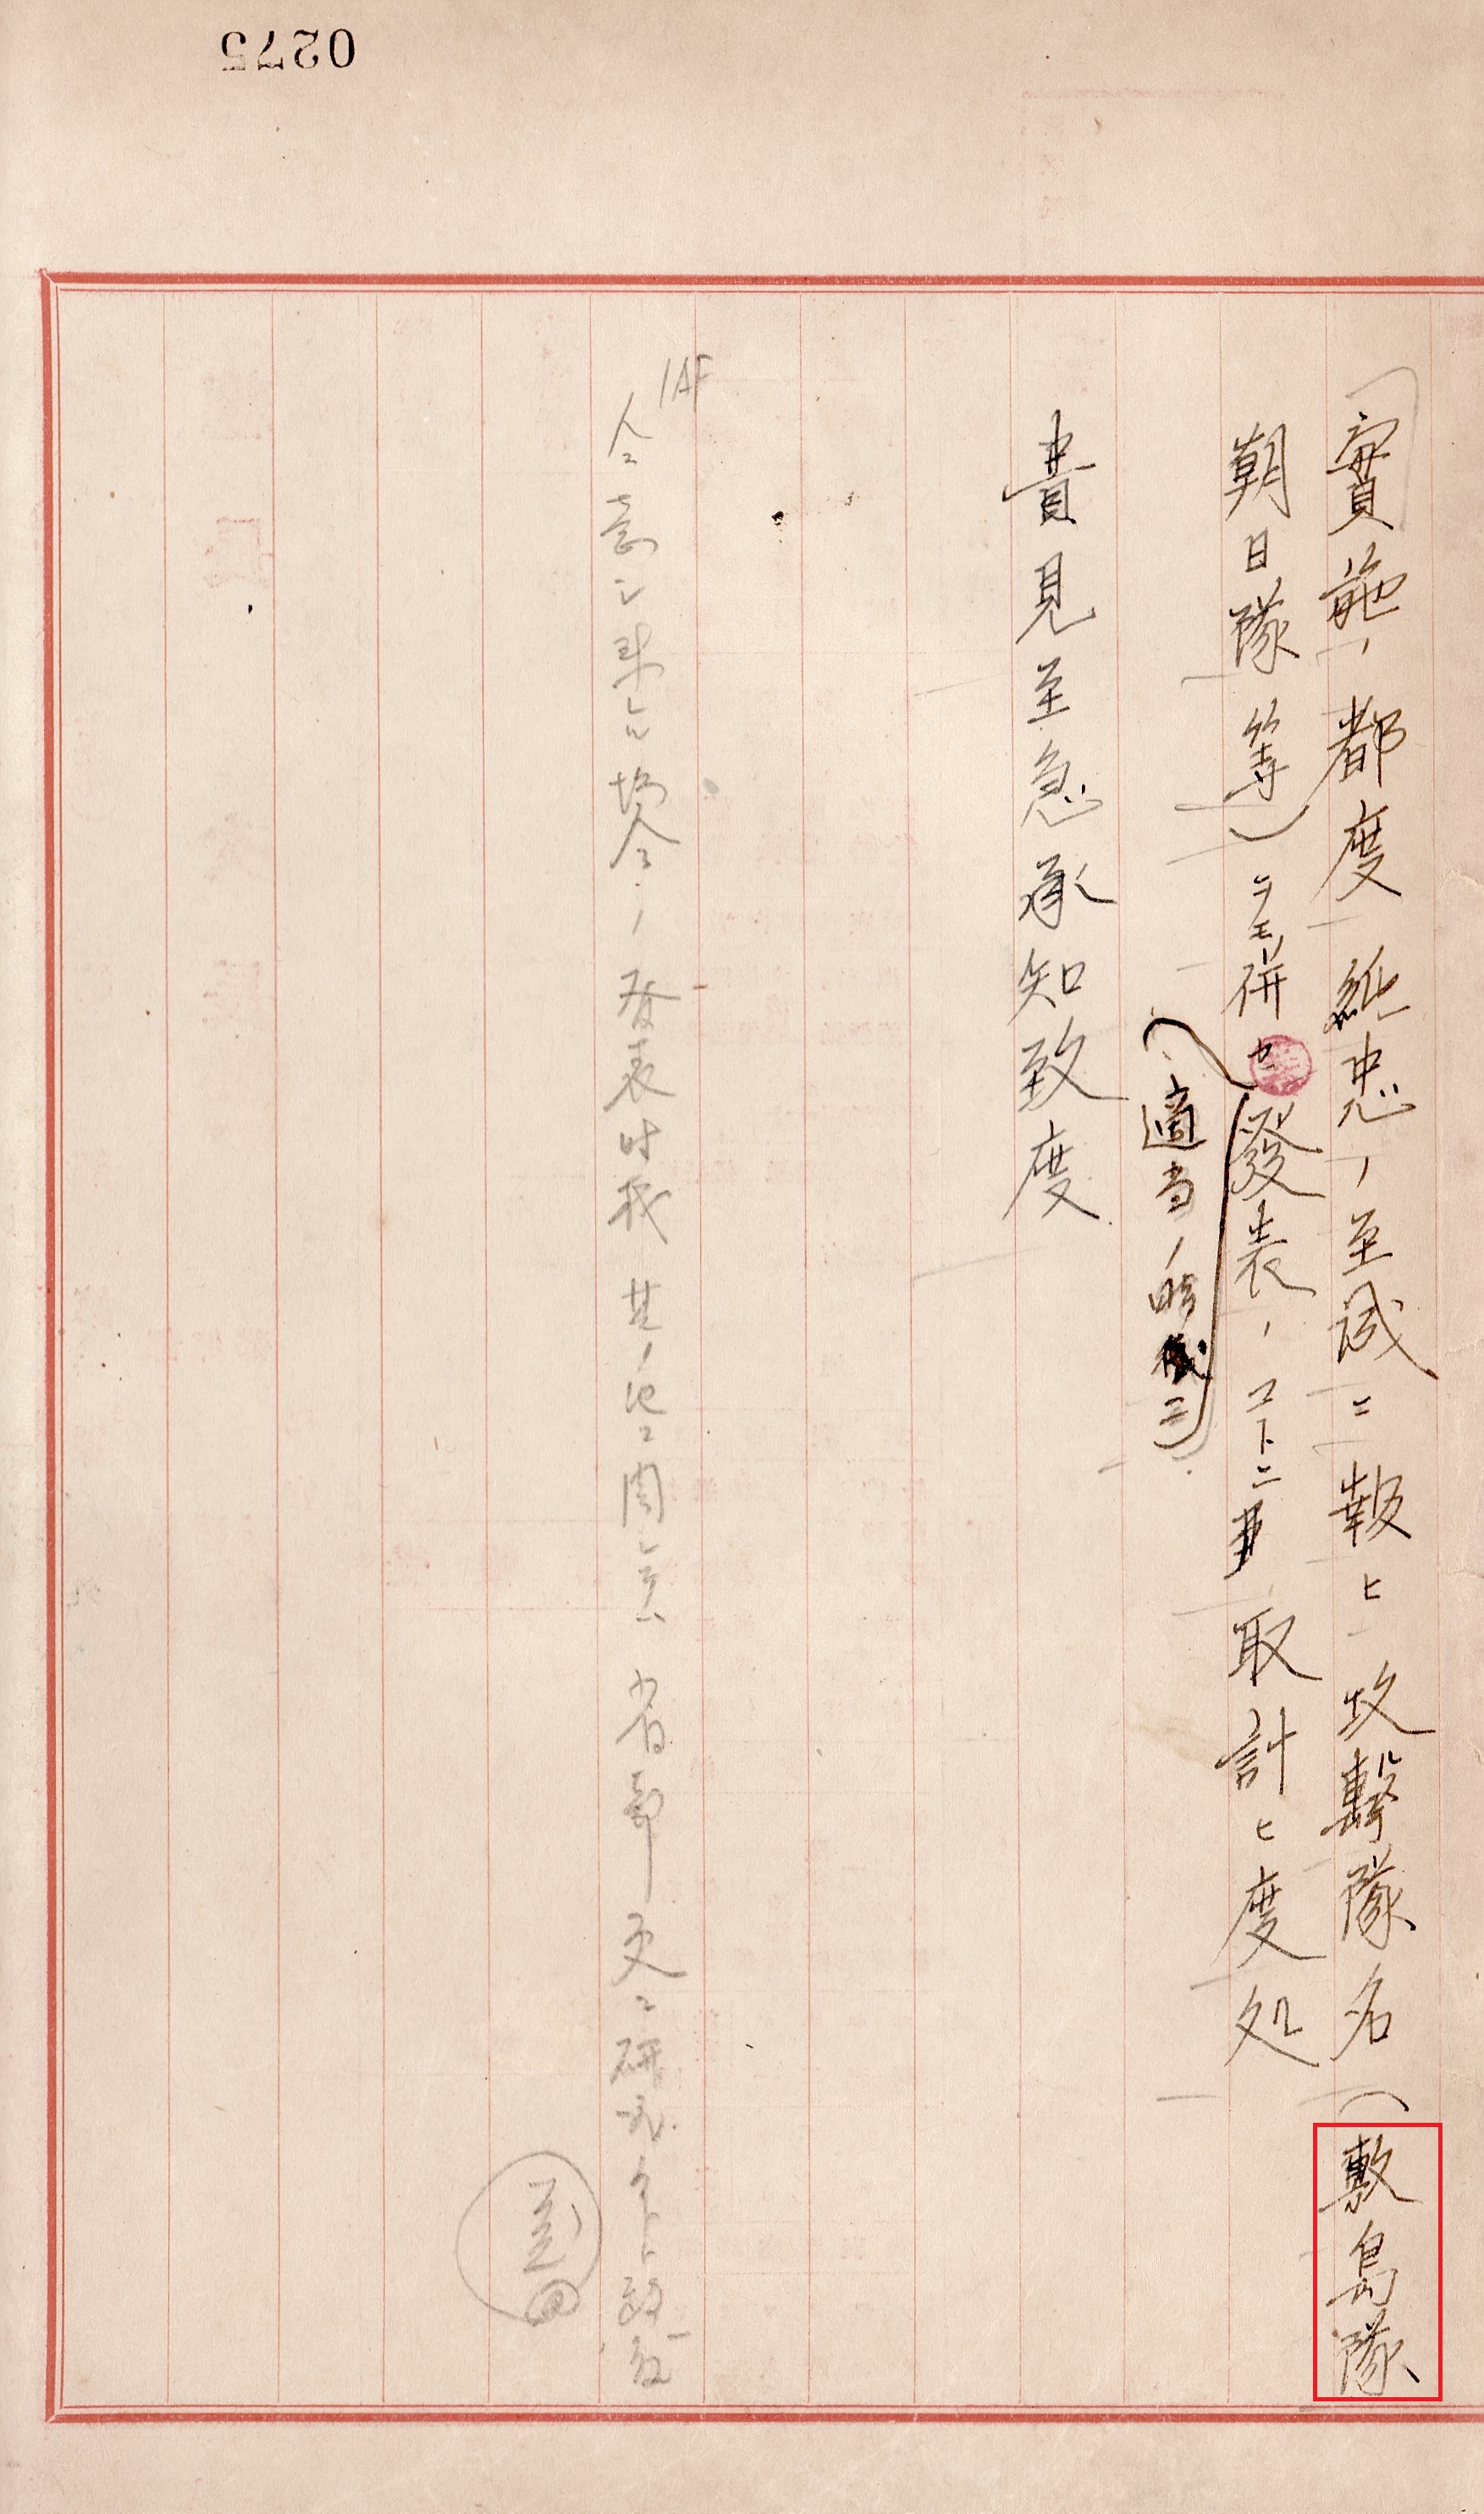 0275
實施ノ都度純忠ノ至誠ニ報ヒ攻撃隊名(敷島隊
朝日隊等)ヲモ併セ發表ノコトニ取計ヒ度処
(適当ノ時機ニ)
貴見至急承知致度
1AF
発表時機其ノ他ニ関シテハ省部更ニ研究